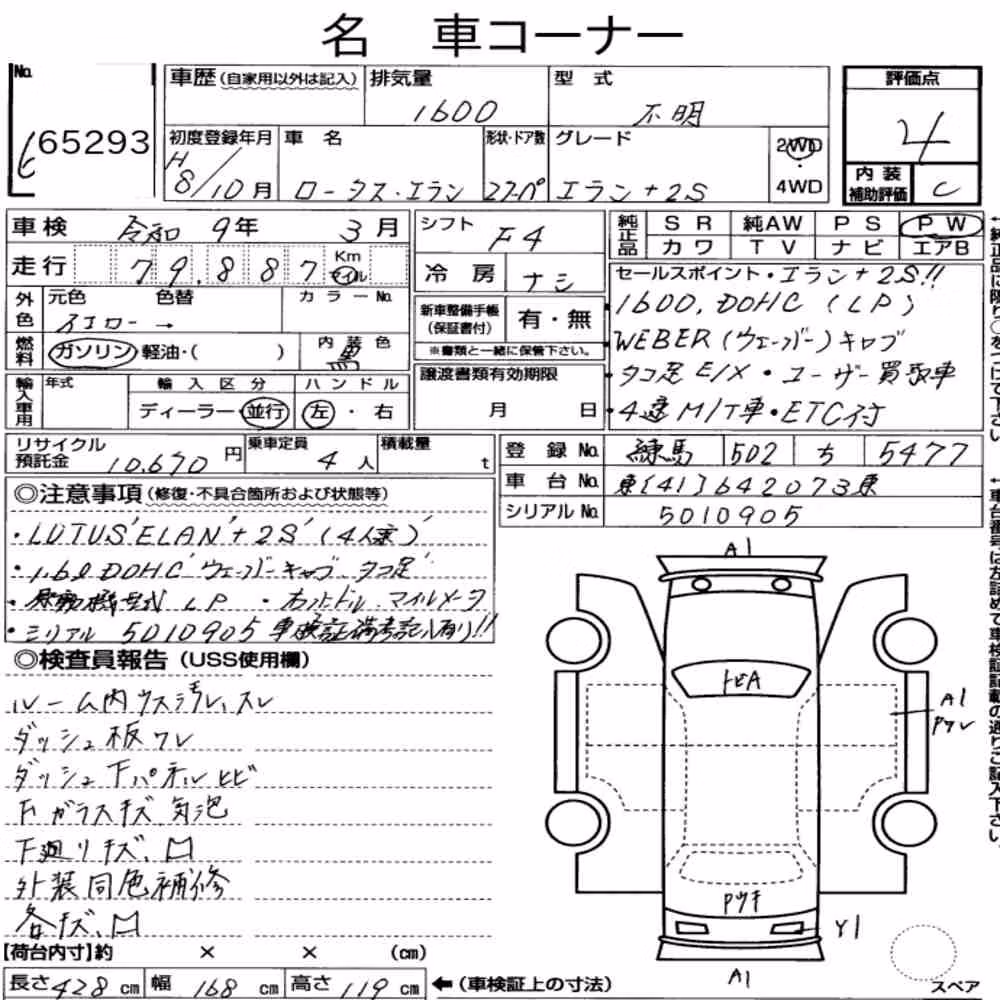 名 車コーナー
No. 65293
車歴(自家用以外は記入)
排気量 1600
型式 不明
評価点 4
初度登録年月 H8/10月
車名 ロータス・エラン
形状・ドア数
グレード エラン+2S
2WD・4WD
内装補助評価 C
車検 令和9年3月
走行 79,887 Km マイル
シフト F4
冷房 ナシ
純正品 SR 純AW PS PW
カワ TV ナビ エアB
外色 元色 色替 カラーNo.
イエロー→
燃料 ガソリン・軽油・( )
内装色 黒
新車整備手帳(保証書付) 有・無
※書類と一緒に保管下さい。
セールスポイント・エラン+2S!!
・1600, DOHC (LP)
・WEBER(ウェーバー)キャブ
・タコ足E/X・ユーザー買取車
・4速M/T車・ETC付
輸入車用 年式 輸入区分 ハンドル
ディーラー・並行 左・右
譲渡書類有効期限
月 日
リサイクル預託金 10,670円
乗車定員 4人
積載量 t
登録No. 練馬 502 ち 5477
車台No. 東[41]642073東
シリアルNo. 5010905
◎注意事項(修復・不具合箇所および状態等)
・LOTUS'ELAN'+2S'(4人乗)'
・1.6ℓDOHC'ウェーバーキャブ タコ足'
・原動機型式 LP ・右ハンドル マイルメータ
・シリアル 5010905 車検証備考記入有り!!
◎検査員報告(USS使用欄)
ルーム内ウス汚レ、スレ
ダッシュ板ワレ
ダッシュ下パネルヒビ
Fガラスキズ 気泡
下廻りキズ、凹
外装同色補修
各キズ、凹
A1
トビA
A1
Pワレ
Pツキ
Y1
A1
【荷台内寸】約 × × (cm)
長さ428cm 幅168cm 高さ119cm ←(車検証上の寸法)
スペア
↑純正品に限り○をつけて下さい。
↑車台番号は左詰めで車検証記載の通りご記入下さい。